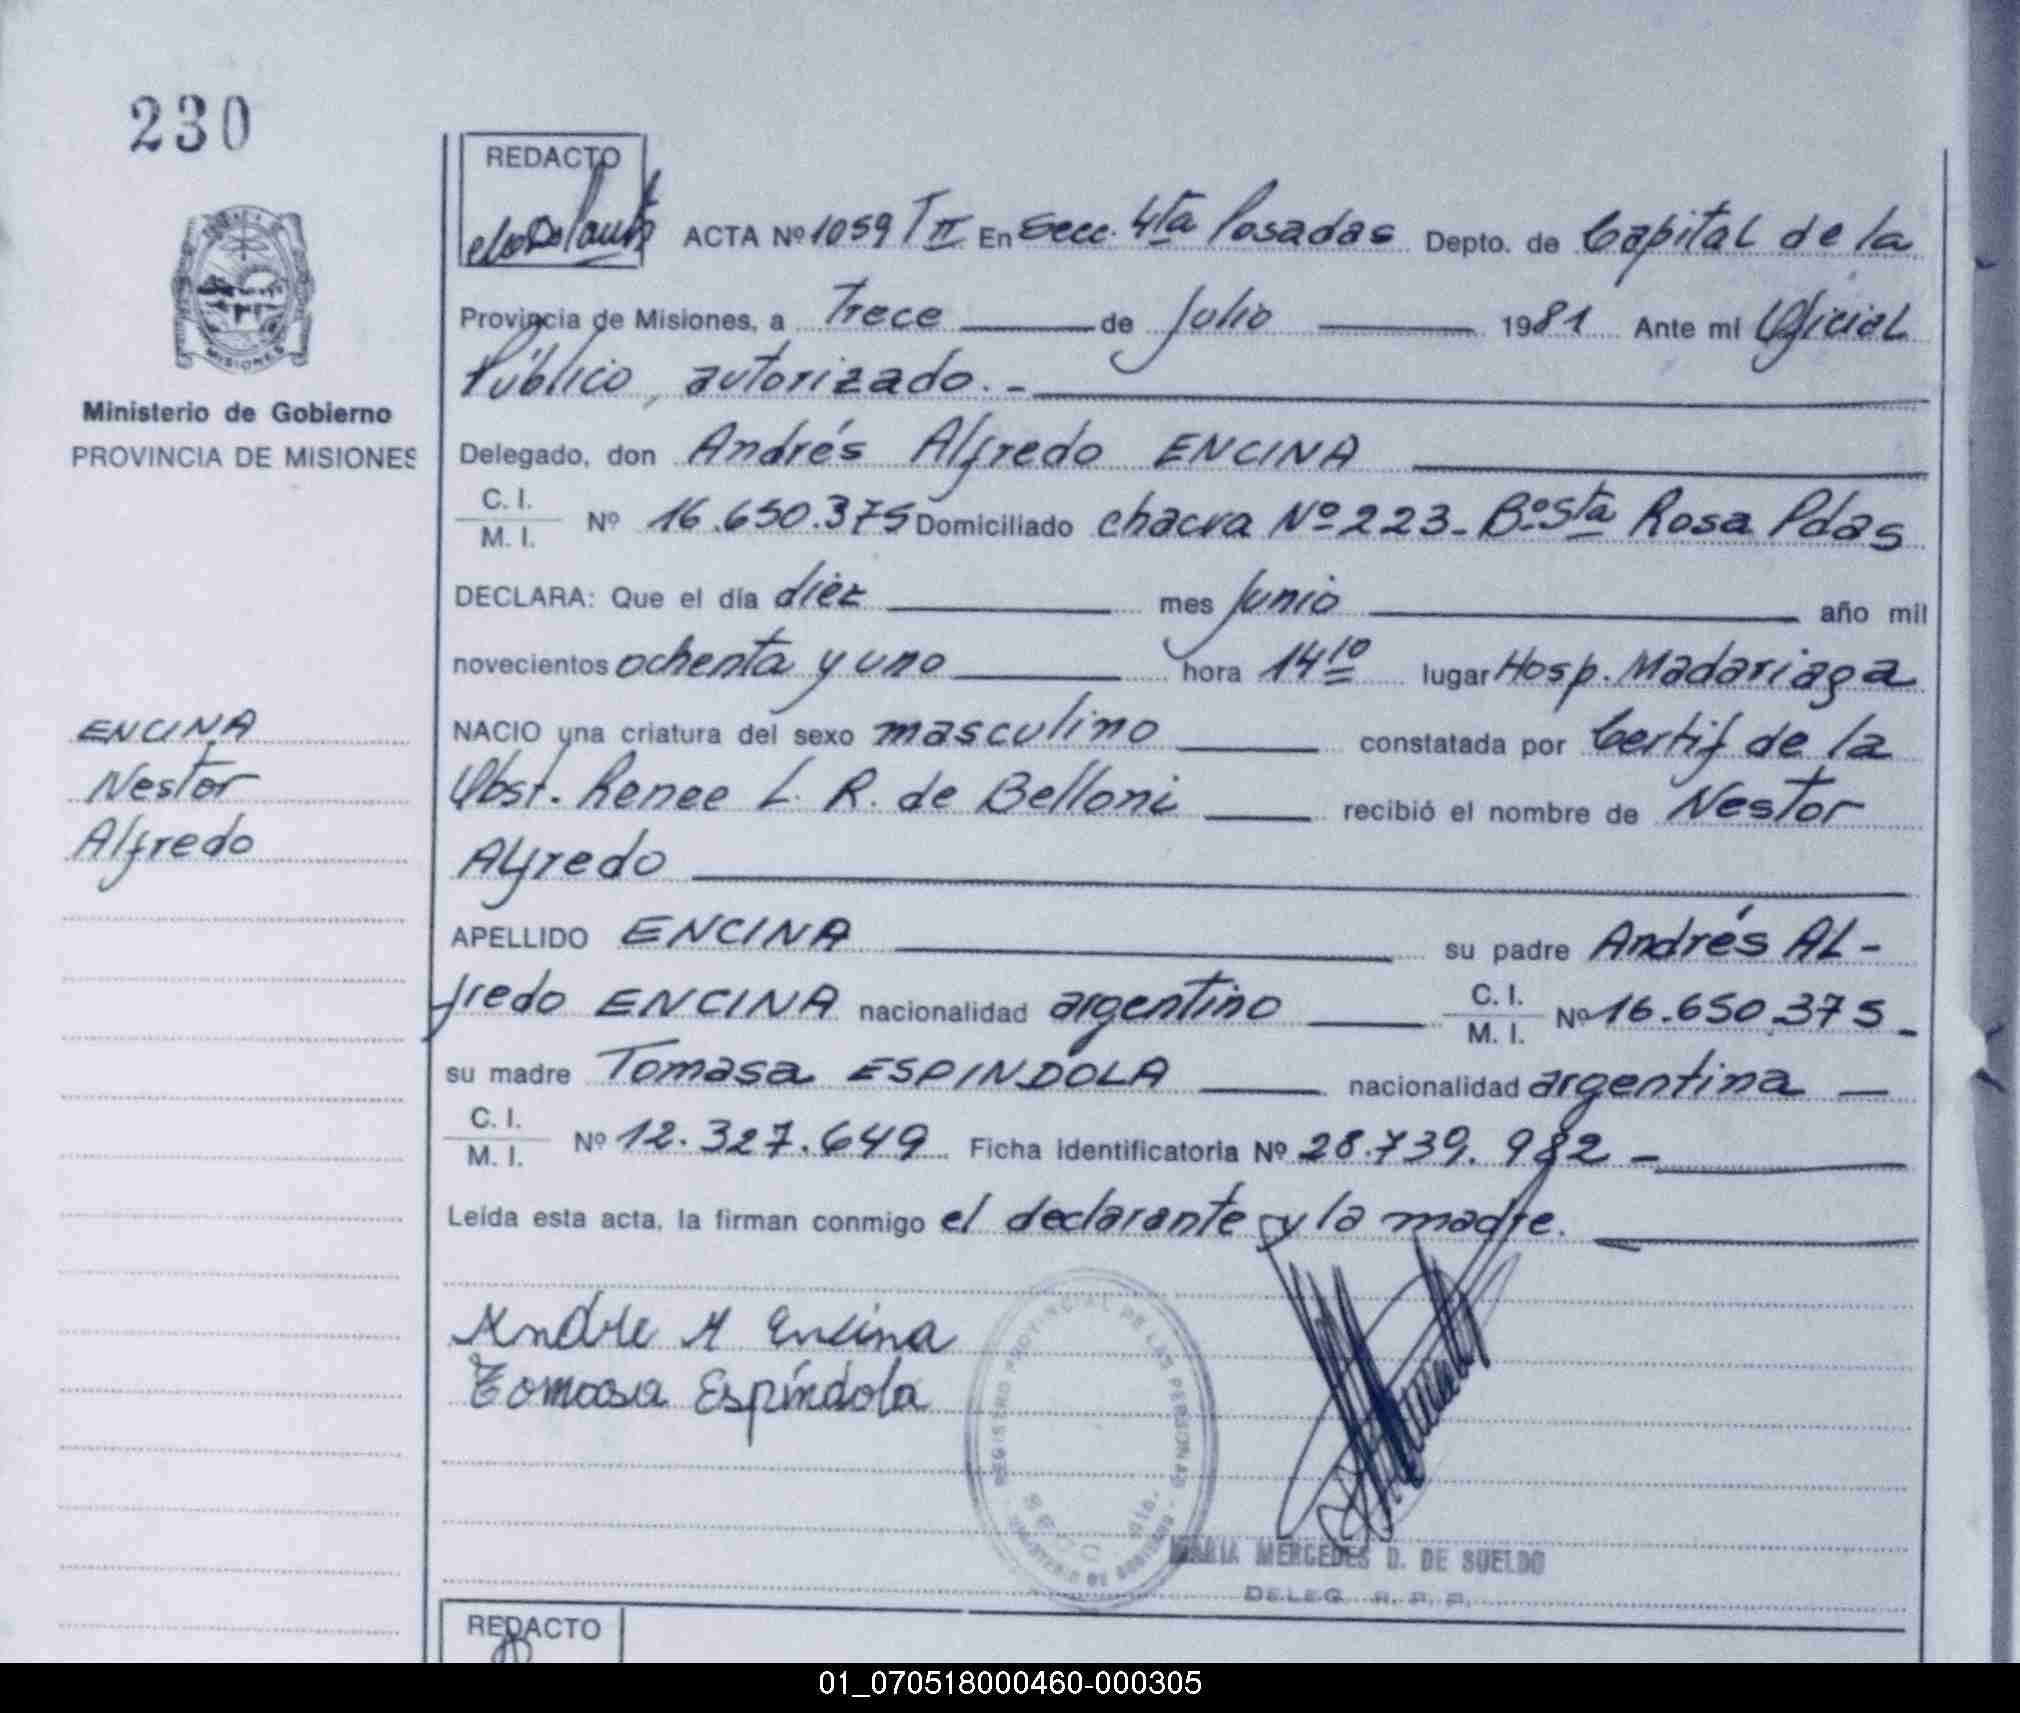 230
REDACTO
ACTA Nº 1059 T II En Secc. 4ta Posadas Depto. de Capital de la
Provincia de Misiones, a Trece de Julio 1981 Ante mi Oficial
Público, autorizado.-
MISIONES
Ministerio de Gobierno
PROVINCIA DE MISIONES
Delegado, don Andrés Alfredo ENCINA
C. I.
M. I. Nº 16.650.375 Domiciliado chacra Nº 223- Bº Sta Rosa Pdas
DECLARA: Que el día diez mes Junio año mil
novecientos ochenta y uno hora 14 10 lugar Hosp. Madariaga
ENCINA
Nestor
Alfredo
NACIO una criatura del sexo masculino constatada por Certif de la
Obst. Renee L. R. de Belloni recibió el nombre de Nestor
Alfredo
APELLIDO ENCINA su padre Andrés AL-
fredo ENCINA nacionalidad argentino C. I.
M. I. Nº 16.650.375-
su madre Tomasa ESPINDOLA nacionalidad argentina
C. I.
M. I. Nº 12.327.649 Ficha identificatoria Nº 28.739.982-
Leída esta acta, la firman conmigo el declarante y la madre.
Andre A Encina
Tomasa Espíndola
REGISTRO PROVINCIAL DE LAS PERSONAS
MINISTERIO DE GOBIERNO
MARIA MERCEDES D. DE SUELDO
DELEG. R. P. P.
REDACTO
01_070518000460-000305